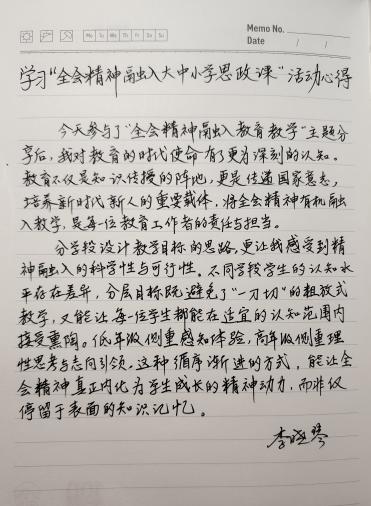 Memo No.
Mo Tu We Th Fr Sa Su
Date / /
学习“全会精神融入大中小学思政课”活动心得
今天参与了“全会精神融入教育教学”主题分
享后，我对教育的时代使命有了更为深刻的认知。
教育不仅是知识传授的阵地，更是传递国家意志，
培养新时代新人的重要载体，将全会精神有机融
入教学，是每一位教育工作者的责任与担当。
分学段设计教学目标的思路，更让我感受到精
神融入的科学性与可行性。不同学段学生的认知水
平存在差异，分层目标既避免了“一刀切”的粗放式
教学，又能让每一位学生都能在适宜的认知范围内
接受熏陶。低年级侧重感知体验，高年级侧重理
性思考与志向引领，这种循序渐进的方式，能让全
会精神真正内化为学生成长的精神动力，而非仅
停留于表面的知识记忆。
李晓琴